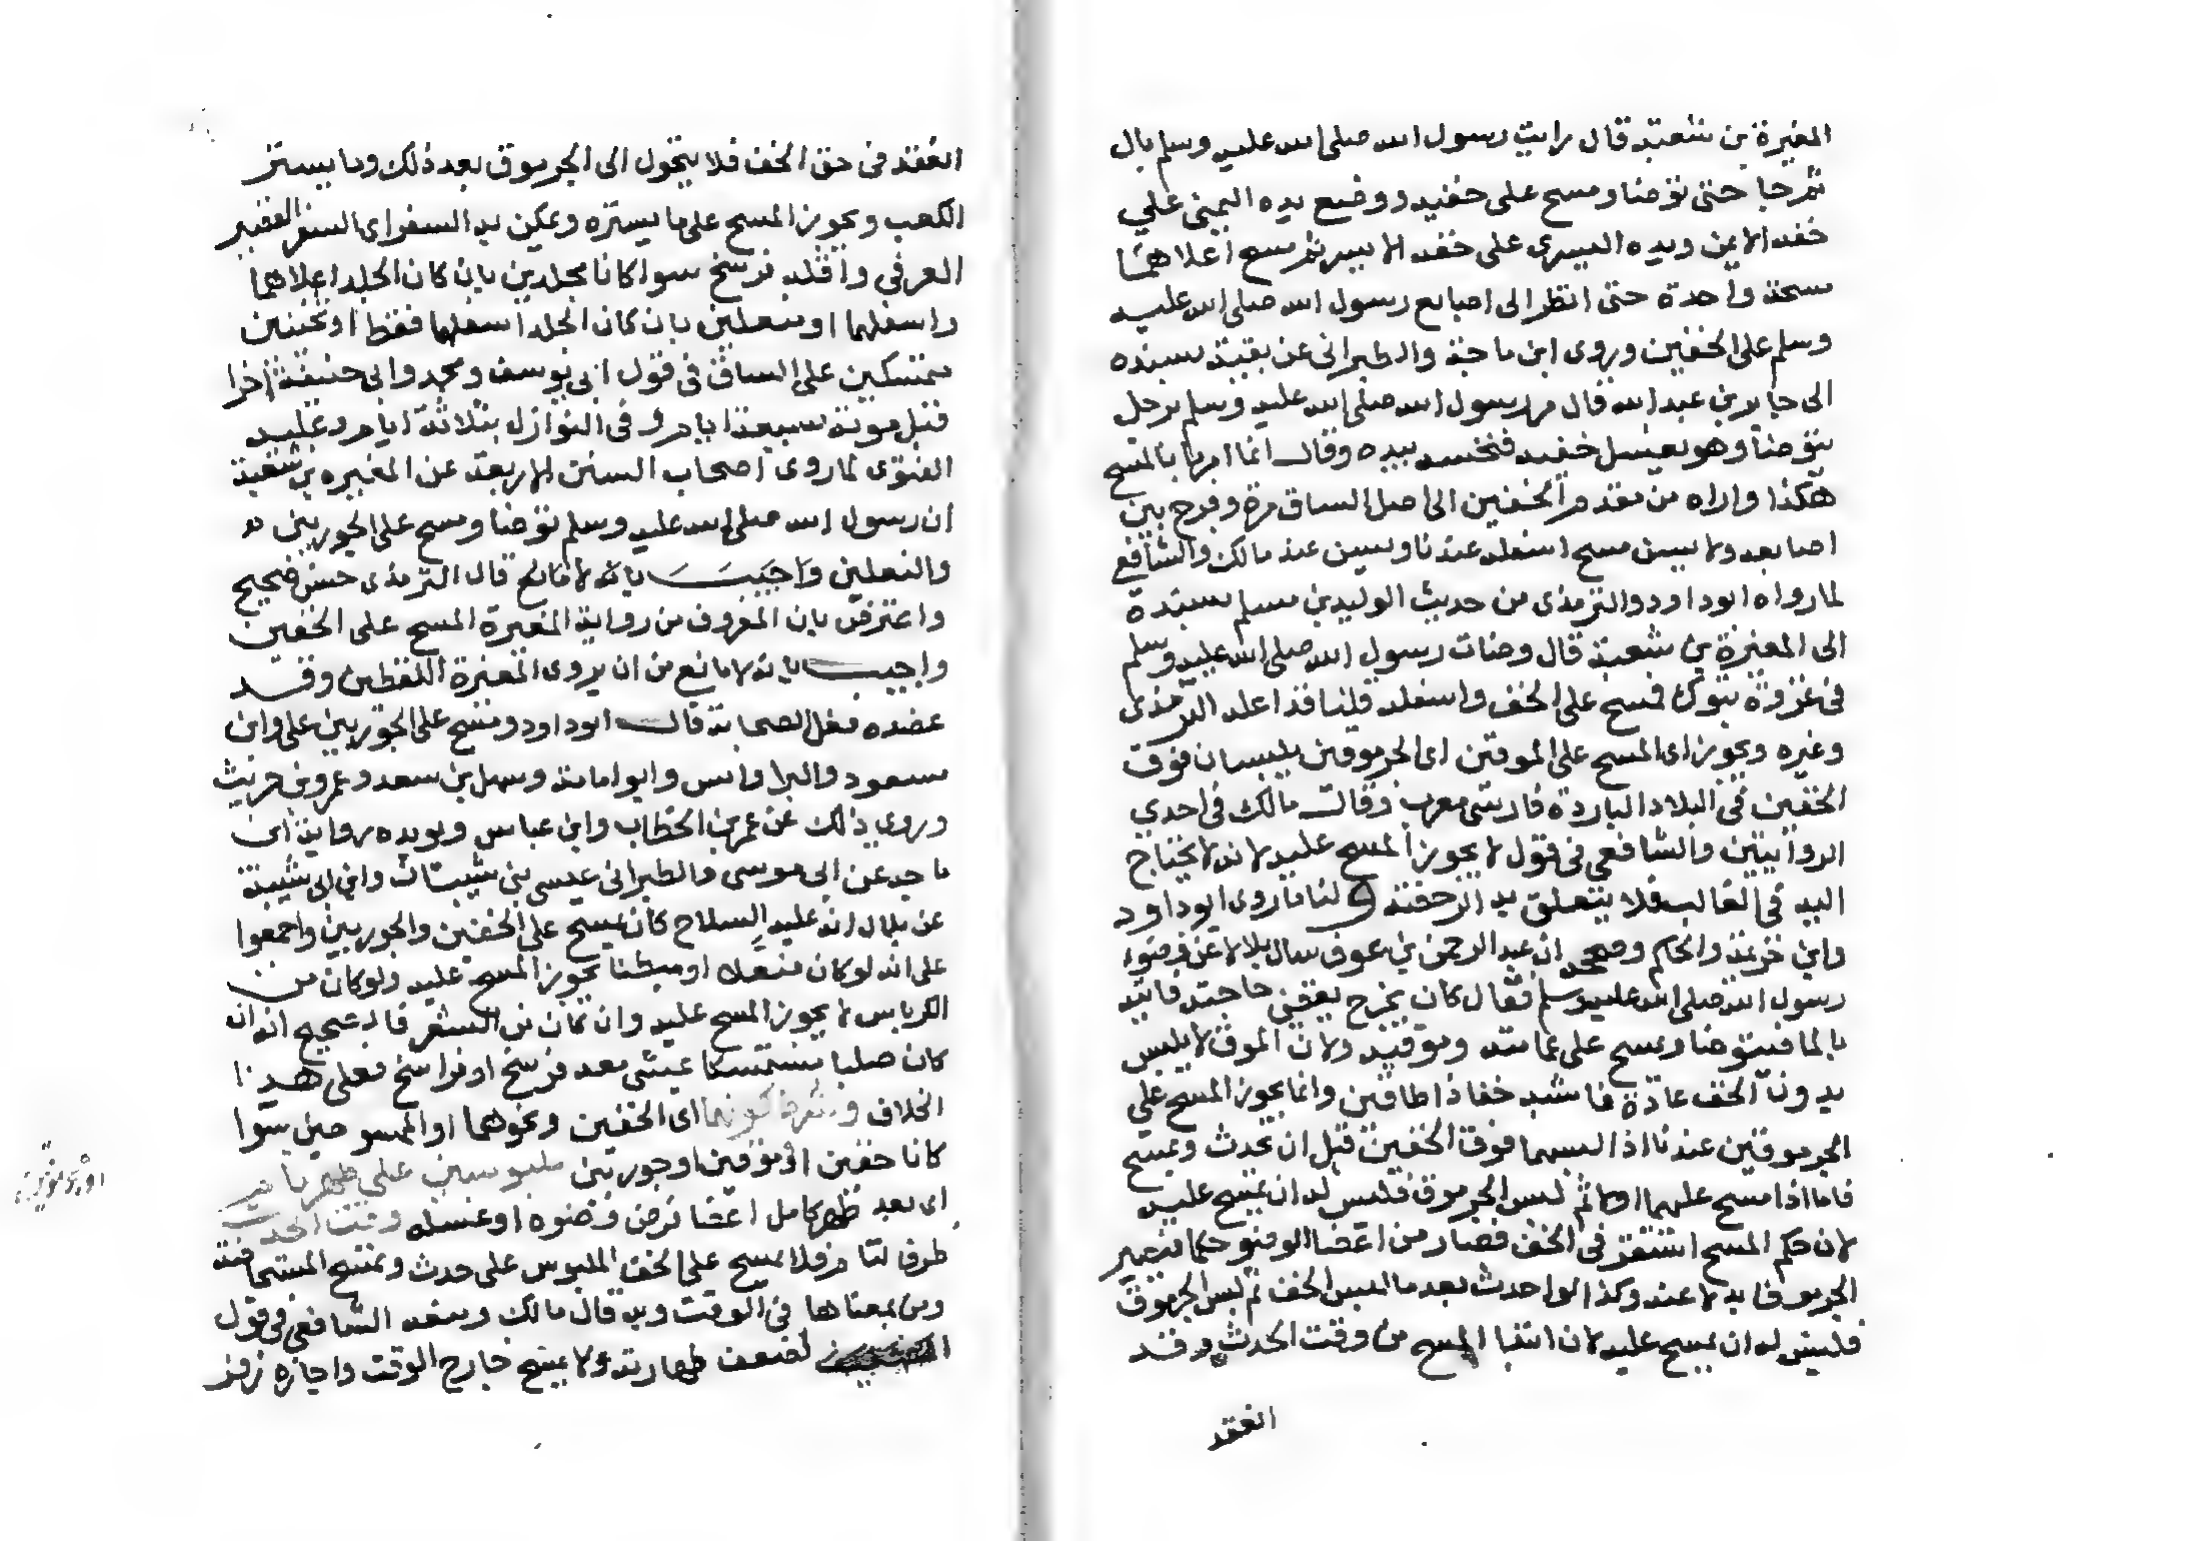 المغيرة بن شعبة قال رايت رسول الله صلى الله عليه وسلم بال
ثم جا حتى توضا ومسح على خفيه ووضع يده اليمنى علي
خفه الايمن ويده اليسرى على خفه الايسر ثم مسح اعلاهما
مسحة واحدة حتى انظر الى اصابع رسول الله صلى الله عليه
وسلم على الخفين وروى ابن ماجة والطبراني عن بقية بسنده
الى جابر بن عبد الله قال مر رسول الله صلى الله عليه وسلم برجل
يتوضا وهو يغسل خفيه فنخسه بيده وقال انما امرنا بالمسح
هكذا واراه من مقدم الخفين الى اصل الساق مرة وفرج بين
اصابعه ولا يسن مسح اسفله عندنا ويسن عند مالك والشافعي
لما رواه ابو داود والترمذي من حديث الوليد بن مسلم بسنده
الى المغيرة بن شعبة قال وضات رسول الله صلى الله عليه وسلم
في غزوة تبوك فمسح على الخف واسفله قلنا قد اعله الترمذي
وغيره ويجوز اي المسح على الموقين اي الجرموقين يلبسان فوق
الخفين في البلاد الباردة فارسي معرب وقال مالك في احدي
الروايتين والشافعي في قول لا يجوز المسح عليه لانه لا يحتاج
اليه في الغالب فلا يتعلق به الرخصة ولنا ما روى ابو داود
وابن خزيمة والحاكم وصححه ان عبد الرحمن بن عوف سال بلالا عن وضوء
رسول الله صلى الله عليه وسلم فقال كان يخرج يقضي حاجته فاتيه
بالما فيتوضا ويمسح على عمامته وموقيه ولان الموق لا يلبس
بدون الخف عادة فاشبه خفا ذا طاقين وانما يجوز المسح على
الجرموقين عندنا اذا لبسهما فوق الخفين قبل ان يحدث ويمسح
فاما اذا مسح عليهما اولا ثم لبس الجرموق فليس له ان يمسح عليه
لان حكم المسح استقر في الخف فصار من اعضا الوضو حكما فتصير
الجرموق بدلا عنه وكذا لو احدث بعد ما لبس الخف ثم لبس الجرموق
فليس له ان يمسح عليه لان ابتدا المسح من وقت الحدث وقد
انعقد
انعقد في حق الخف فلا يتحول الى الجرموق بعد ذلك وما يستر
الكعب ويجوز المسح على ما يستره ويمكن به السفر اي السفر
العرفي واقله فرسخ سوا كانا مجلدين بان كان الجلد اعلاهما
واسفلهما او منعلين بان كان الجلد اسفلهما فقط او ثخينين
متمسكين على الساق في قول ابي يوسف ومحمد وابي حنيفة اخرا
قبل موته بسبعة ايام وفي النوازل بثلاثة ايام وعليه
الفتوى لما روى اصحاب السنن الاربعة عن المغيره بن شعبة
ان رسول الله صلى الله عليه وسلم توضا ومسح على الجوربين
والنعلين واجيب بانه لا مانع قال الترمذي حسن صحيح
واعترض بان المعروف من رواية المغيرة المسح على الخفين
واجيب بانه لا مانع من ان يروى المغيرة اللفظين وقد
عضده فعل الصحابة قال ابو داود ومسح على الجوربين على وابن
مسعود والبرا وانس وابو امامة وسهل بن سعد وعمرو بن حريث
وروي ذلك عن عمر بن الخطاب وابن عباس ويويده رواية ابن
ماجه عن ابي موسى والطبراني عيسى بن وابن ابي شيبة
عن بلال انه عليه السلام كان يمسح على الخفين والجوربين واجمعوا
على انه لو كان منعلا او مبطنا يجوز المسح عليه ولو كان من
الكرباس لا يجوز المسح عليه وان كان من الشعر فالصحيح انه ان
كان صلبا مستمسكا يمشى معه فرسخ او فراسخ فعلى هذا
الخلاف كونهما اى الخفين ونحوهما او الممسوحين سوا
كانا خفين او موقين او جوربين ملبوسين على طهر تام
اى بعد طهر كامل اعضا فرض وضوه او غسله وقت الحدث
ظرف لتام فلا يمسح على الخف الملبوس على حدث وتمسح المستحاضة
ومن بمعناها في الوقت وبه قال مالك ومنعه الشافعي في قول
لضعف طهارته ولا يمسح خارج الوقت واجازه زفر